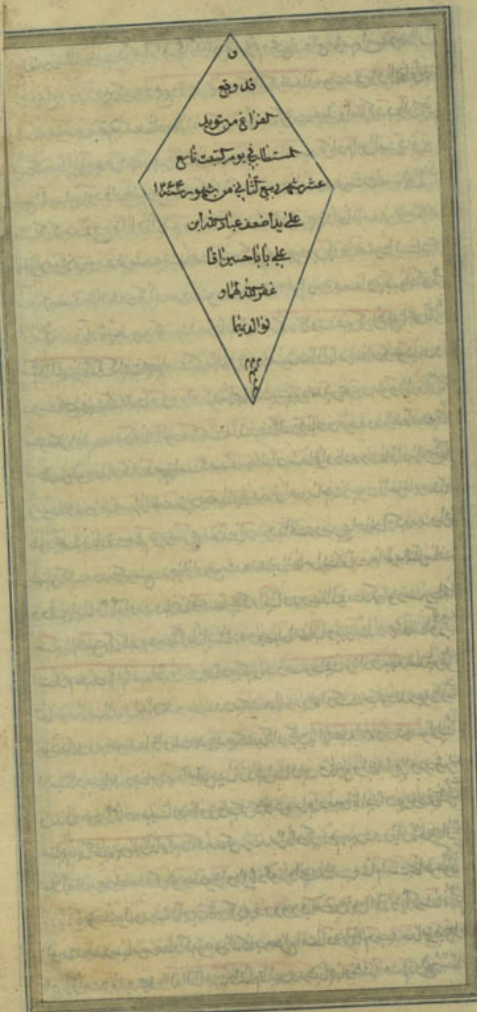 و
قد وقع
الفراغ من تسوید
المستطاب فی یوم السبت تاسع
عشر شهر ربیع الثانی من شهور سنه ۱۲۴۴
علی ید اضعف عباد الله ابن
علی بابا حسین آقا
غفر الله لهما و
لوالدیهما